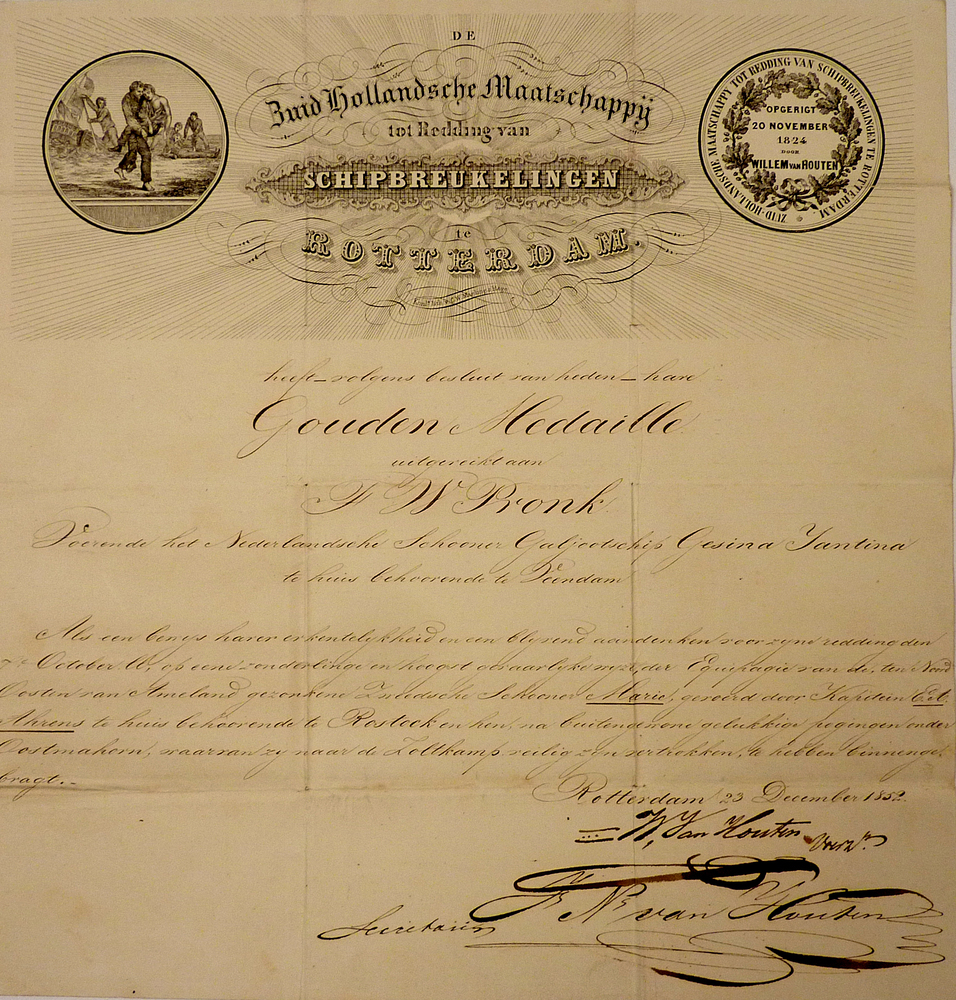 DE
Zuid Hollandsche Maatschappij
tot Redding van
SCHIPBREUKELINGEN
te
ROTTERDAM.
ZUID-HOLLANDSCHE MAATSCHAPPIJ TOT REDDING VAN SCHIPBREUKELINGEN TE ROTTERDAM.
OPGERIGT
20 NOVEMBER
1824
DOOR
WILLEM VAN HOUTEN
heeft volgens besluit van heden hare
Gouden Medaille
uitgereikt aan
F W Pronk
Voerende het Nederlandsche Schooner Galjootschip Gesina Jantina
te huis behoorende te Veendam
Als een bewys harer erkentelykheid en een blyvend aandenken voor zyne redding den
October op eene zonderlinge en hoogst gevaarlyke wyze, der Equipagie van de, ten Noord
Oosten van Ameland gezonkene Zweedsche Schooner Marie, gevoerd door Kapitein
Ahrens te huis behoorende te Rostock en hen, na buitengewone gelukkige pogingen onder
Oostmahorn, waarvan zy naar de Zoltkamp veilig zyn vertrokken, te hebben binnenge-
bragt.
Rotterdam 23 December 1852.
W. Van Houten Voorzr.
van Houten
Secretaris